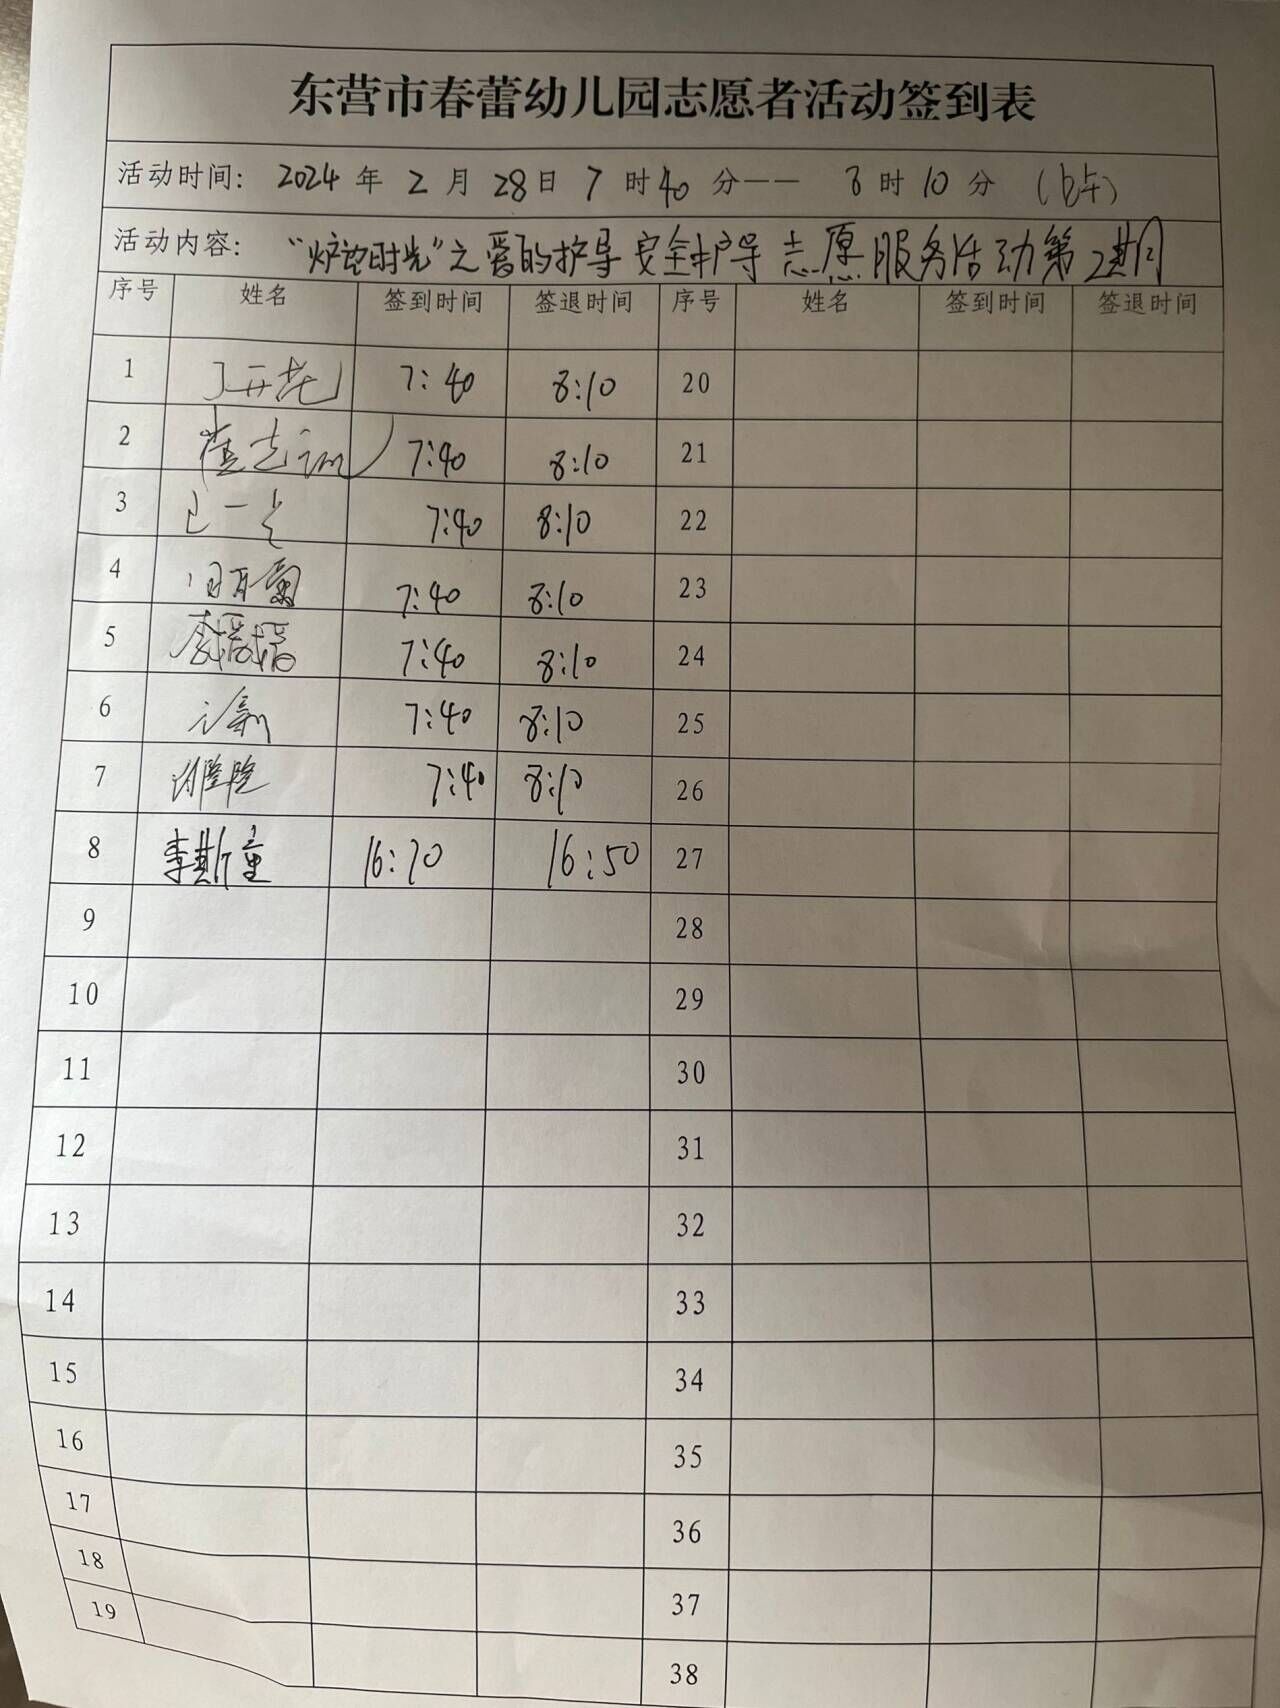 东营市春蕾幼儿园志愿者活动签到表
活动时间: 2024 年 2 月 28 日 7 时 40 分—— 8 时 10 分
活动内容: 时光”之爱的护导 安全护导 志愿服务活动第2期
序号 姓名 签到时间 签退时间 序号 姓名 签到时间 签退时间
1 7:40 8:10 20
2 7:40 8:10 21
3 7:40 8:10 22
4 7:40 8:10 23
5 7:40 8:10 24
6 7:40 8:10 25
7 7:40 8:10 26
8 李斯童 16:50 27
9 28
10 29
11 30
12 31
13 32
14 33
15 34
16 35
17 36
18 37
19 38